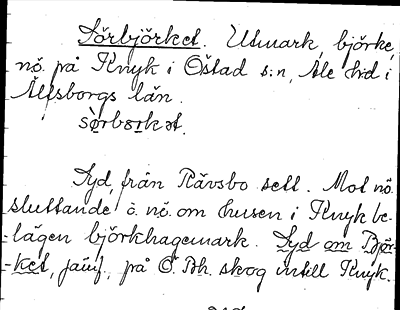 Sörbjörket. Utmark, björke,
nö. på Knyk i Östad s:n, Ale hd i
Älfsborgs län.
sø̀rbɛrkət.
Syd, från Rävsbo sett. Mot nö.
sluttande ö. nö. om husen i Knyk be-
lägen björkhagemark. Syd om Björ-
ket, jämf., på Ö. Bh. skog intill Knyk.